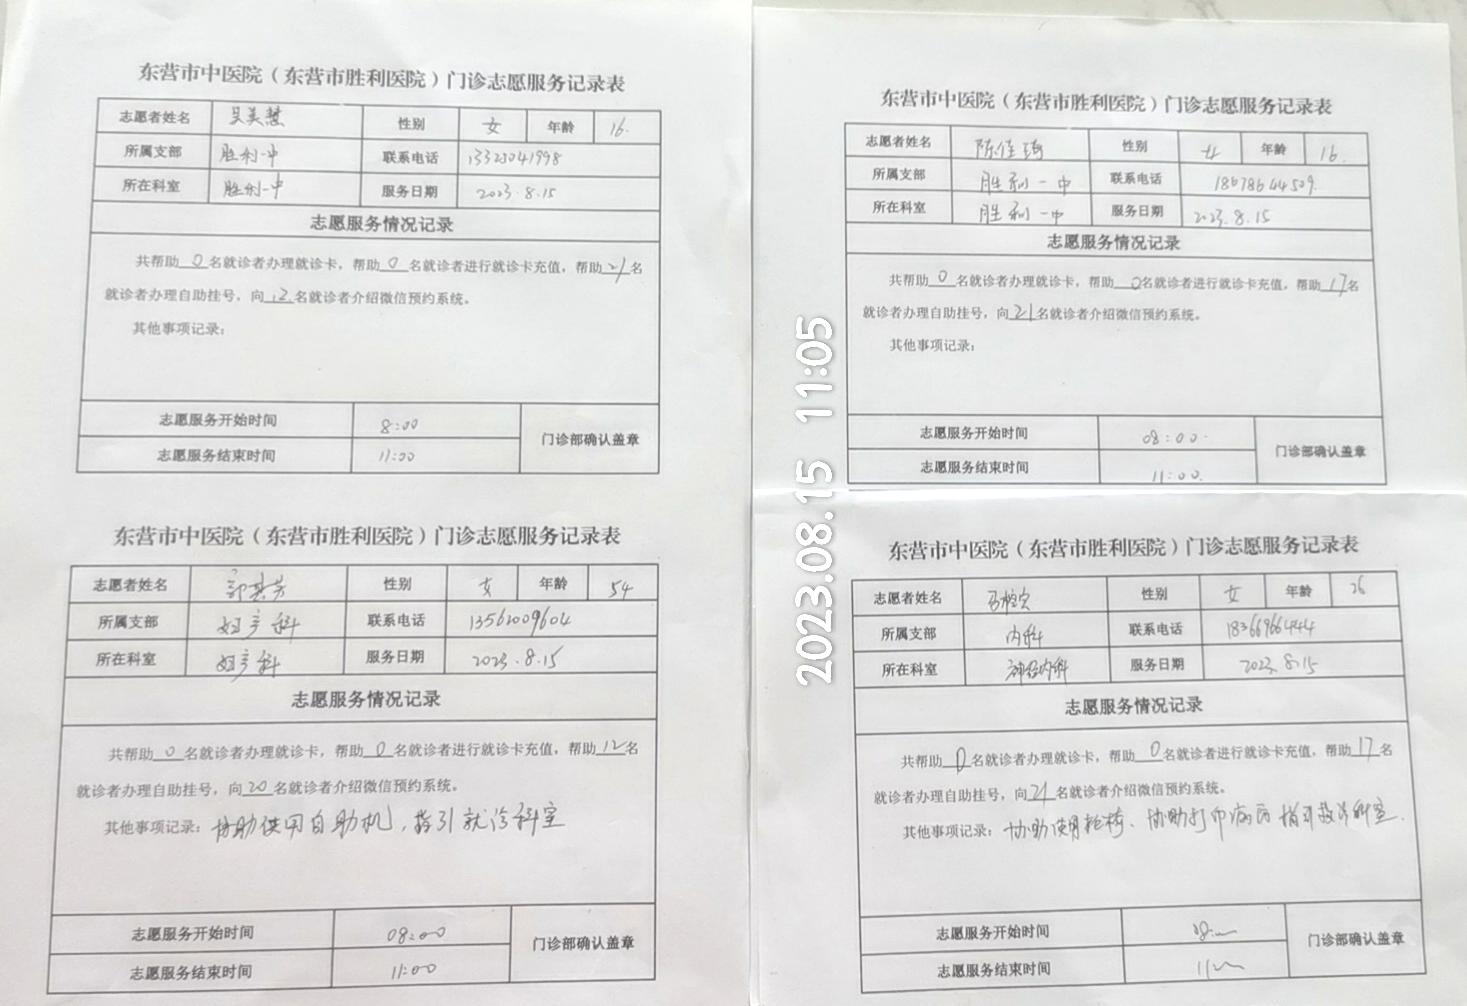 东营市中医院（东营市胜利医院）门诊志愿服务记录表
志愿者姓名 吴美慧 性别 女 年龄 16.
所属支部 胜利一中 联系电话 13325041998
所在科室 胜利一中 服务日期 2023.8.15
志愿服务情况记录
共帮助0名就诊者办理就诊卡，帮助0名就诊者进行就诊卡充值，帮助21名
就诊者办理自助挂号，向12名就诊者介绍微信预约系统。
其他事项记录：
志愿服务开始时间 8:00
门诊部确认盖章
志愿服务结束时间 11:00
东营市中医院（东营市胜利医院）门诊志愿服务记录表
志愿者姓名 陈佳琦 性别 女 年龄 16.
所属支部 胜利一中 联系电话 18678644509.
所在科室 胜利一中 服务日期 2023.8.15
志愿服务情况记录
共帮助0名就诊者办理就诊卡，帮助0名就诊者进行就诊卡充值，帮助17名
就诊者办理自助挂号，向21名就诊者介绍微信预约系统。
其他事项记录：
志愿服务开始时间 08:00.
门诊部确认盖章
志愿服务结束时间 11:00.
东营市中医院（东营市胜利医院）门诊志愿服务记录表
志愿者姓名 郭其芳 性别 女 年龄 54
所属支部 妇产科 联系电话 13562009604
所在科室 妇产科 服务日期 2023.8.15
志愿服务情况记录
共帮助0名就诊者办理就诊卡，帮助0名就诊者进行就诊卡充值，帮助12名
就诊者办理自助挂号，向20名就诊者介绍微信预约系统。
其他事项记录：协助使用自助机，指引就诊科室
志愿服务开始时间 08:00
门诊部确认盖章
志愿服务结束时间 11:00
东营市中医院（东营市胜利医院）门诊志愿服务记录表
志愿者姓名 性别 女 年龄 26
所属支部 内科 联系电话 18366966444
所在科室 神经内科 服务日期 2023.8.15
志愿服务情况记录
共帮助0名就诊者办理就诊卡，帮助0名就诊者进行就诊卡充值，帮助17名
就诊者办理自助挂号，向21名就诊者介绍微信预约系统。
其他事项记录：协助使用轮椅、协助打印病历 指引就诊科室.
志愿服务开始时间
门诊部确认盖章
志愿服务结束时间
2023.08.15 11:05